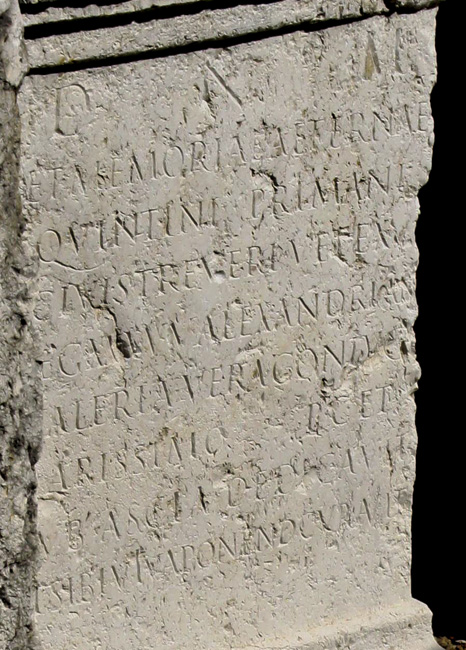 D M
ET MEMORIAE AETERNAE
QVINTINI PRIMANI
CIVIS TREVERI VET EX
LEG ALEXANDRIAN
ALERIA VERAGONDV
ARISSIMO P C ET
SVB ASCIA DEDICAVIT
T SIBI VIVA PONEND CVRAVIT